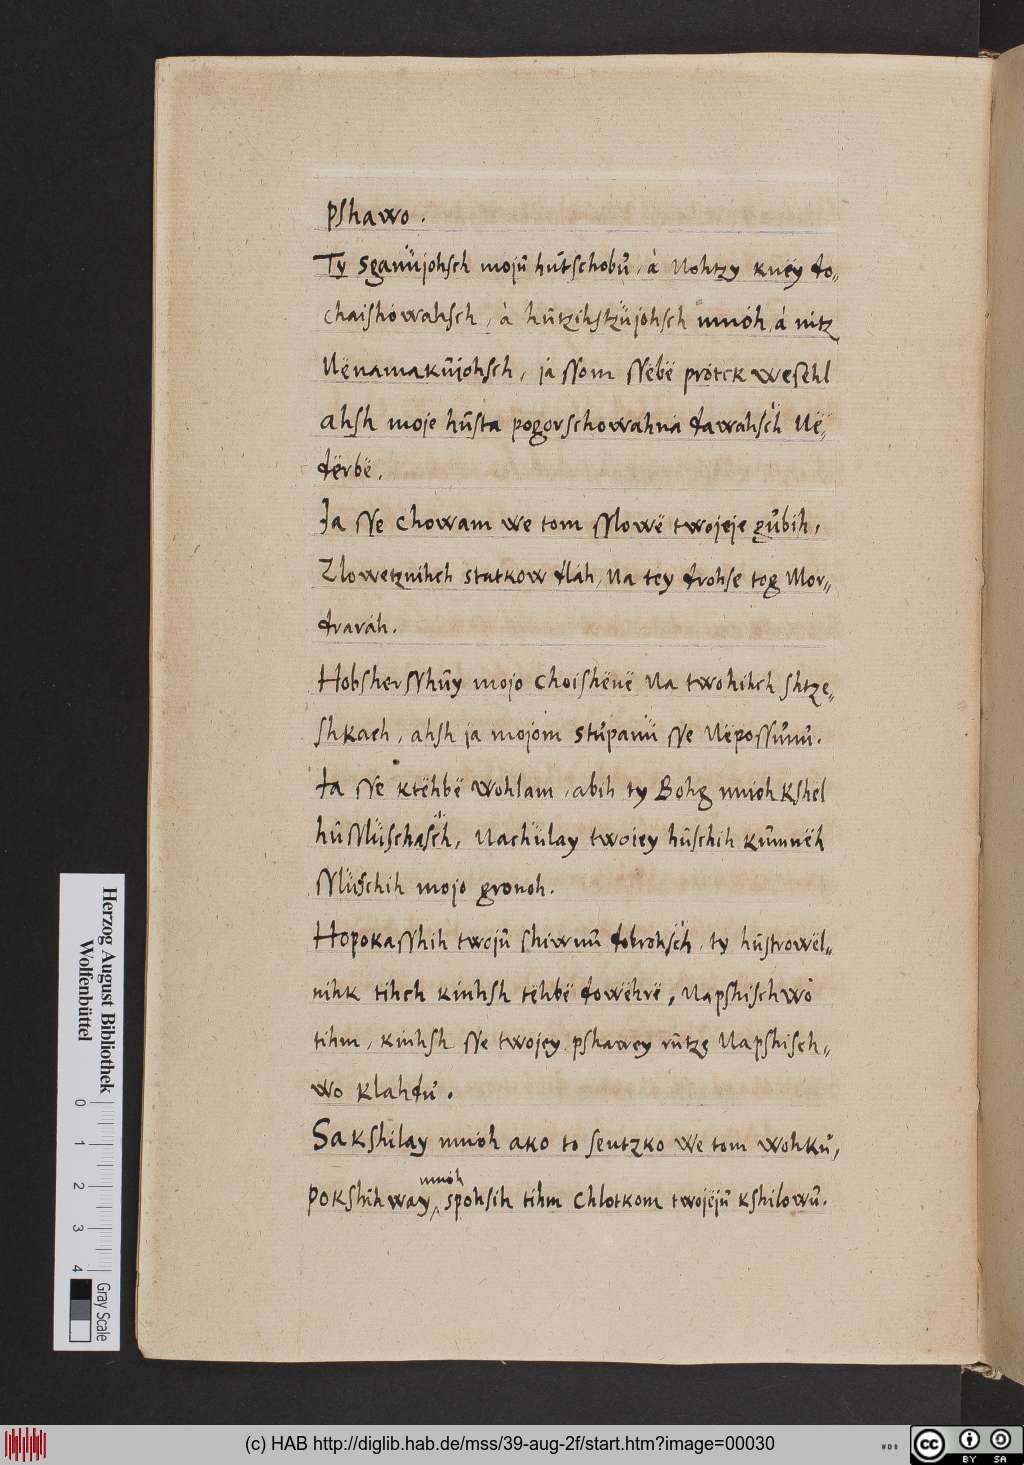 pshawo .
Ty sganüjohsch mojū hūtschobū, à Nohtzy knëy do„
chaishówahsch, à hūtzihstzüjohsch mnóh, à nitz
Nënamakūjohsch, ja ssom ssebë prótck weſehl
ahsh moje hūsta pogorschowahna dawahsch Në„
dërbë.
Ja sse chowam we tom sslowë twojeje gūbih,
Zlowetznihch statkow dlah, Na tey drohse tog Mor„
draráh.
Hobshersshūy mojo choishënë Na twohihch shtze„
shkach, ahsh ja mojom stūpanü sse Nëpossūnū.
Ja sse ktëhbë wohlam, abih ty Bohg mnioh kshël
hū sslüschasch, Nachülay twoiey hūschih kūmnëh
sslüschih mojo gronoh.
Hopokasshih twojū shiwnū dobrohsch, ty hūstrowël„
nihk tihch kinhsh tëhbë dowëhrë, Napshischwo
tihm, kinhsh sse twojey pshawey rūtze Napshisch„
wo kláhdū.
Sakshilay mnoh ako to seutzko We tom wohkū,
mnóh
pokshūhway spohsih tihm chlotkom twojëjū kshilowū.
Herzog August Bibliothek
Wolfenbüttel
0 1 2 3 4
Gray Scale
(c) HAB http://diglib.hab.de/mss/39-aug-2f/start.htm?image=00030
WDB
cc BY SA